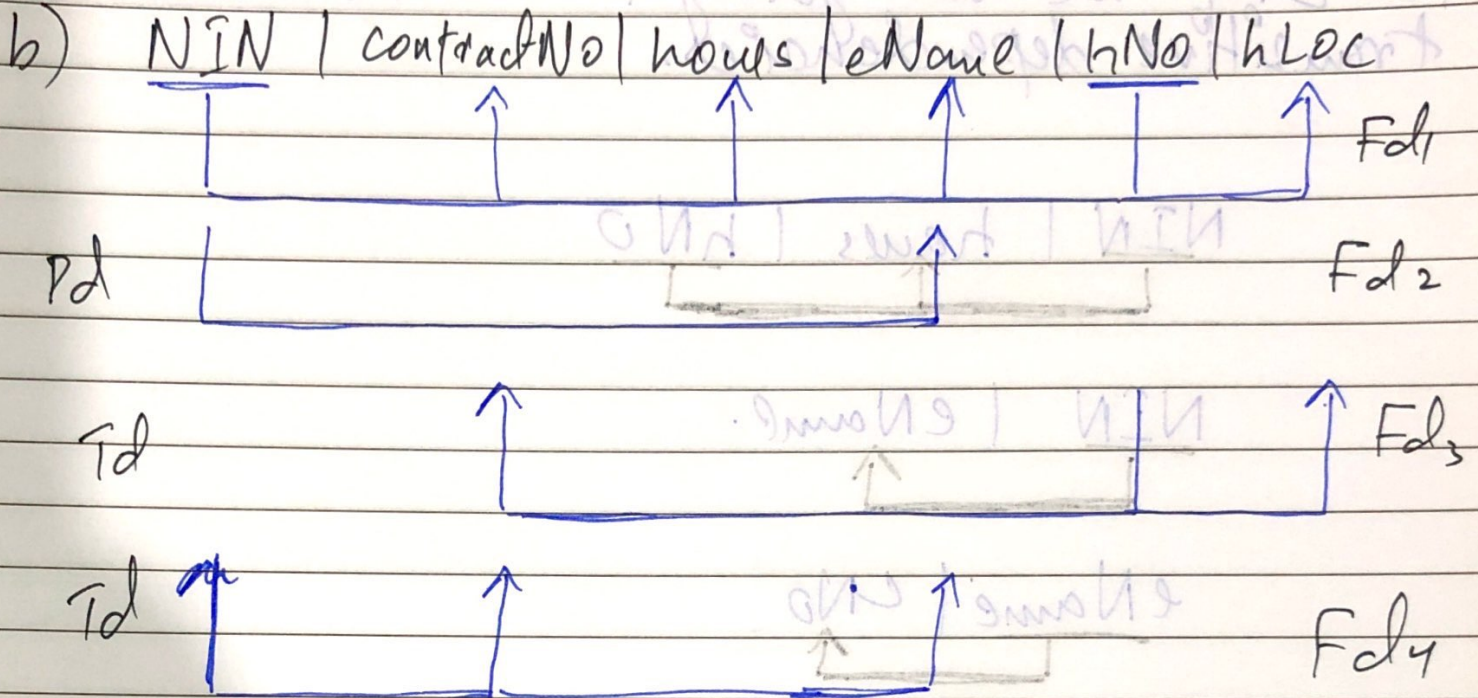 b) NIN | contractNo | hours | eName | hNo | hLoc
Fd1
Pd Fd2
Td Fd3
Td Fd4